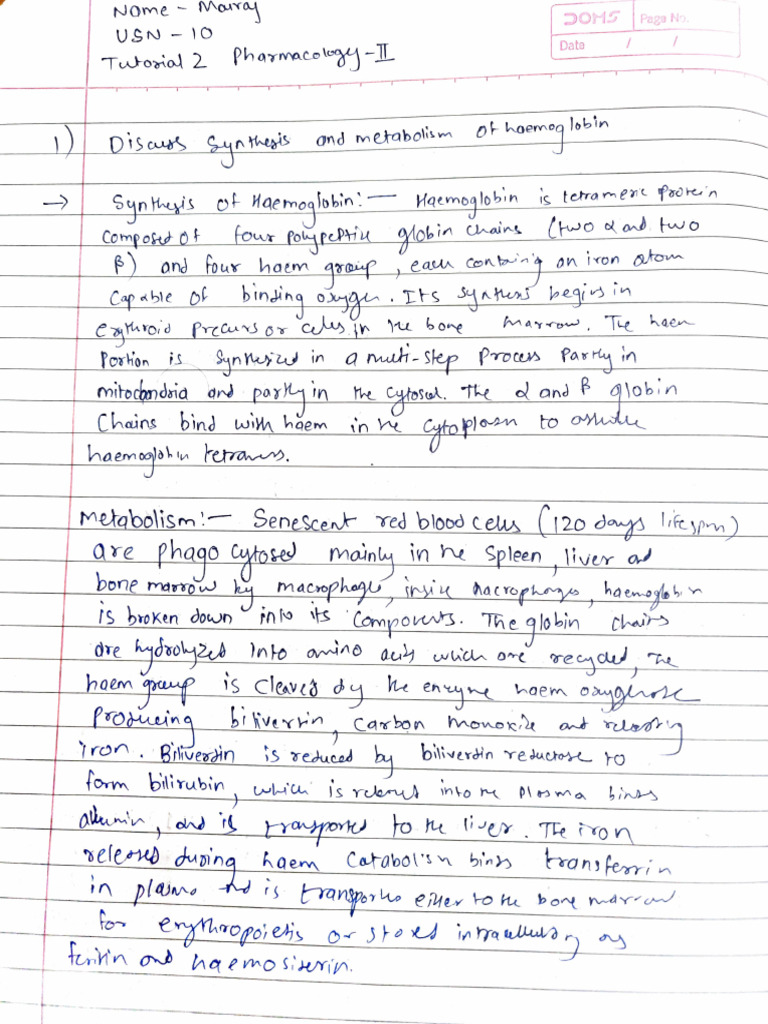 Name - Mairaj
USN - 10
Tutorial 2 Pharmacology-II
DOMS Page No.
Date / /
1) Discuss synthesis and metabolism of haemoglobin
→ Synthesis of Haemoglobin:— Haemoglobin is tetrameric protein
composed of four polypeptide globin chains (two α and two
β) and four haem group, each containing an iron atom
capable of binding oxygen. Its synthesis begins in
erythroid precursor cells in the bone marrow. The haem
portion is synthesized in a multi-step process partly in
mitochondria and partly in the cytosol. The α and β globin
chains bind with haem in the cytoplasm to
haemoglobin tetramers.
Metabolism:— Senescent red blood cells (120 days lifespan)
are phagocytosed mainly in the spleen, liver and
bone marrow by macrophages, inside macrophages, haemoglobin
is broken down into its components. The globin chains
are hydrolyzed into amino acids which are recycled, the
haem group is cleaved by the enzyme haem oxygenase
producing biliverdin, carbon monoxide and releasing
iron. Biliverdin is reduced by biliverdin reductase to
form bilirubin, which is released into the plasma binds
albumin, and is transported to the liver. The iron
released during haem catabolism binds transferrin
in plasma and is transported either to the bone marrow
for erythropoietis or stored intracellularly as
ferritin and haemosiderin.